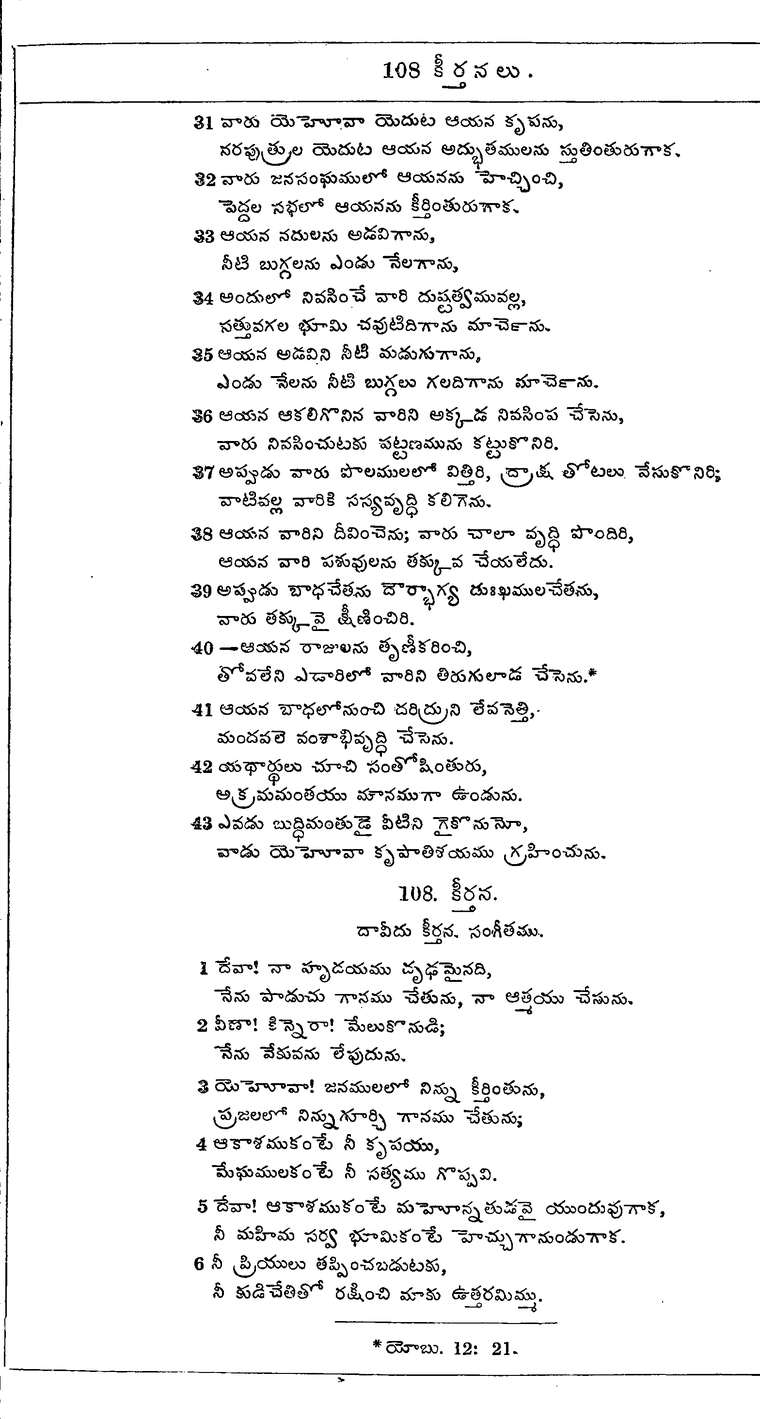 108 కీర్తనలు.
31 వారు యెహోవా యెదుట ఆయన కృపను,
నరపుత్రుల యెదుట ఆయన అద్భుతములను స్తుతింతురుగాక.
32 వారు జనసంఘములో ఆయనను హెచ్చించి,
పెద్దల సభలో ఆయనను కీర్తింతురుగాక.
33 ఆయన నదులను అడవిగాను,
నీటి బుగ్గలను ఎండు నేలగాను,
34 అందులో నివసించే వారి దుష్టత్వమువల్ల,
సత్తువగల భూమి చవుటిదిగాను మార్చెను.
35 ఆయన అడవిని నీటి మడుగుగాను,
ఎండు నేలను నీటి బుగ్గలు గలదిగాను మార్చెను.
36 ఆయన ఆకలిగొనిన వారిని అక్కడ నివసింప చేసెను,
వారు నివసించుటకు పట్టణమును కట్టుకొనిరి.
37 అప్పుడు వారు పొలములలో విత్తిరి, ద్రాక్ష తోటలు వేసుకొనిరి;
వాటివల్ల వారికి సస్యవృద్ధి కలిగెను.
38 ఆయన వారిని దీవించెను; వారు చాలా వృద్ధి పొందిరి,
ఆయన వారి పశువులను తక్కువ చేయలేదు.
39 అప్పుడు బాధచేతను దౌర్భాగ్య దుఃఖములచేతను,
వారు తక్కువై క్షీణించిరి.
40 —ఆయన రాజులను తృణీకరించి,
తోవలేని ఎడారిలో వారిని తిరుగులాడ చేసెను.*
41 ఆయన బాధలోనుంచి దరిద్రుని లేవనెత్తి,
మందవలె వంశాభివృద్ధి చేసెను.
42 యథార్థులు చూచి సంతోషింతురు,
అక్రమమంతయు మౌనముగా ఉండును.
43 ఎవడు బుద్ధిమంతుడై వీటిని గైకొనునో,
వాడు యెహోవా కృపాతిశయము గ్రహించును.
108. కీర్తన.
దావీదు కీర్తన. సంగీతము.
1 దేవా! నా హృదయము దృఢమైనది,
నేను పాడుచు గానము చేతును, నా ఆత్మయు చేసును.
2 వీణా! కిన్నెరా! మేలుకొనుడి;
నేను వేకువను లేపుదును.
3 యెహోవా! జనములలో నిన్ను కీర్తింతును,
ప్రజలలో నిన్నుగూర్చి గానము చేతును;
4 ఆకాశముకంటే నీ కృపయు,
మేఘములకంటే నీ సత్యము గొప్పవి.
5 దేవా! ఆకాశముకంటే మహోన్నతుడవై యుందువుగాక,
నీ మహిమ సర్వ భూమికంటే హెచ్చుగానుండుగాక.
6 నీ ప్రియులు తప్పించబడుటకు,
నీ కుడిచేతితో రక్షించి మాకు ఉత్తరమిమ్ము.
*యోబు. 12: 21.